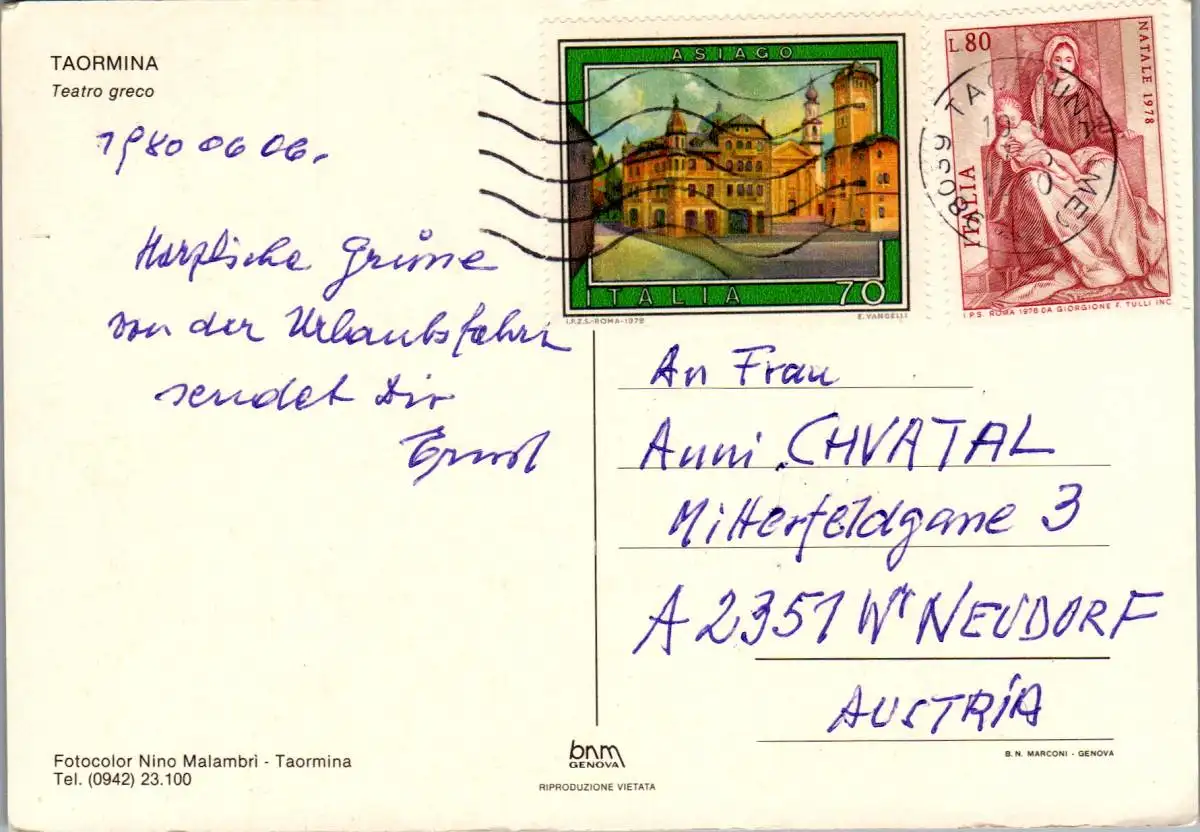 TAORMINA
Teatro greco
1980 06 06.
Herzliche Grüsse
von der Urlaubsfahrt
sendet Dir
Ernst
ASIAGO
ITALIA 70
I.P.Z.S.-ROMA-1978 E. VANGELLI
L. 80
NATALE 1978
ITALIA
I.P.S. ROMA 1978 DA GIORGIONE F. TULLI INC.
98039 TAORMINA ME
An Frau
Anni CHVATAL
Mitterfeldgasse 3
A 2351 Wr NEUDORF
AUSTRIA
Fotocolor Nino Malambrì - Taormina
Tel. (0942) 23.100
bnm
GENOVA
RIPRODUZIONE VIETATA
B. N. MARCONI - GENOVA